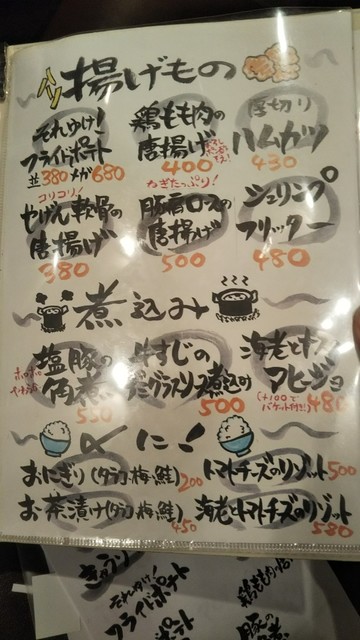 揚げもの
それゆけ!
フライドポテト
並380 メガ680
鶏もも肉の
唐揚げ
400
厚切り
ハムカツ
430
コリコリ!
やげん軟骨の
唐揚げ
380
ねぎたっぷり!
豚肩ロースの
唐揚げ
500
シュリンプ
フリッター
480
煮込み
塩豚の
角煮
550
牛すじの
デミグラスソース煮込み
500
海老とナスの
アヒージョ
(+100で
バゲット付き!)
480
〆に!
おにぎり(タラコ・梅・鮭) 200
お茶漬け(タラコ・梅・鮭) 450
トマトチーズのリゾット 500
海老とトマトチーズのリゾット 580
それゆけ!
フライドポテト